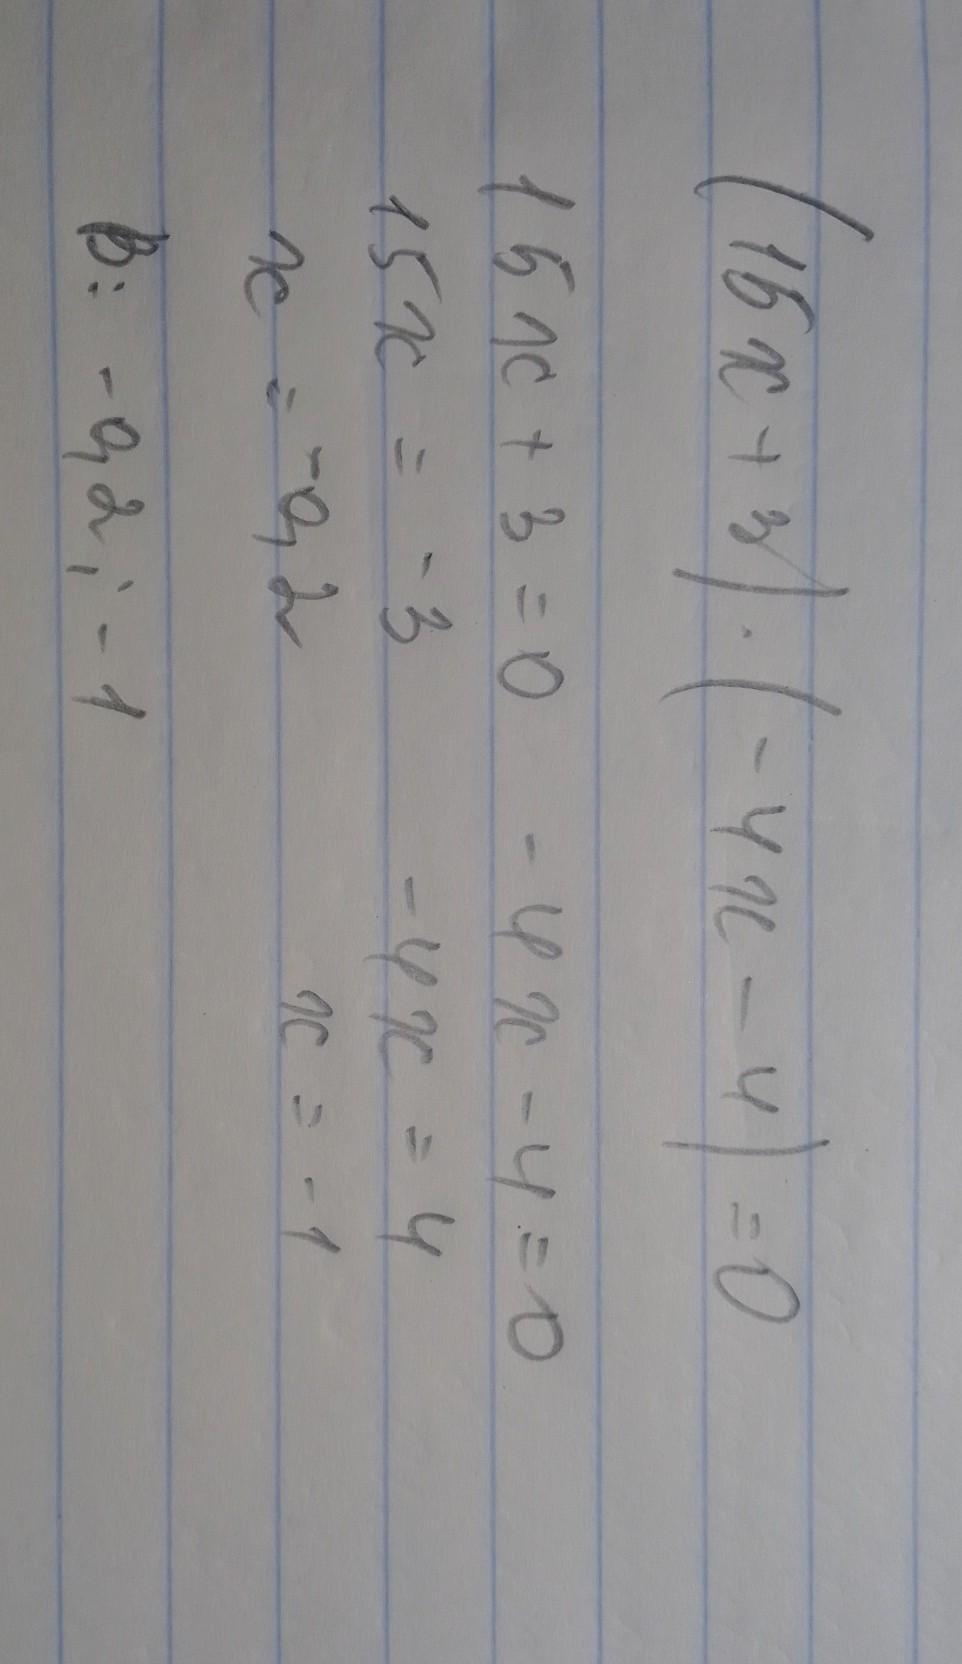 (15x+3)·(-4x-4)=0
15x+3=0 -4x-4=0
15x=-3 -4x=4
x=-0,2 x=-1
В: -0,2; -1